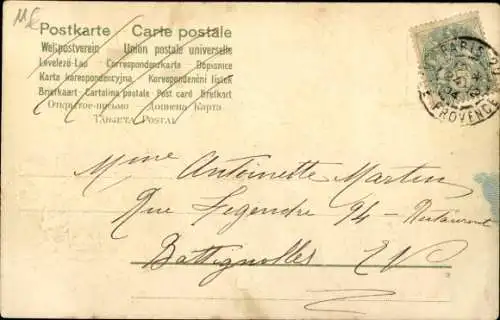 Postkarte Carte postale
Weltpostverein Union postale universelle
Levelező-Lap Correspondenzkarte Dopisnice
Karta korespondencyjna Korespondenční lístek
Briefkaart Cartolina postale Post card Brefkort
Открытое письмо Дописна Карта
Tarjeta Postal
PARIS
PROVENCE
Mme Antoinette Martin
Rue Legendre 94 - Restaurant
Battignolles EV